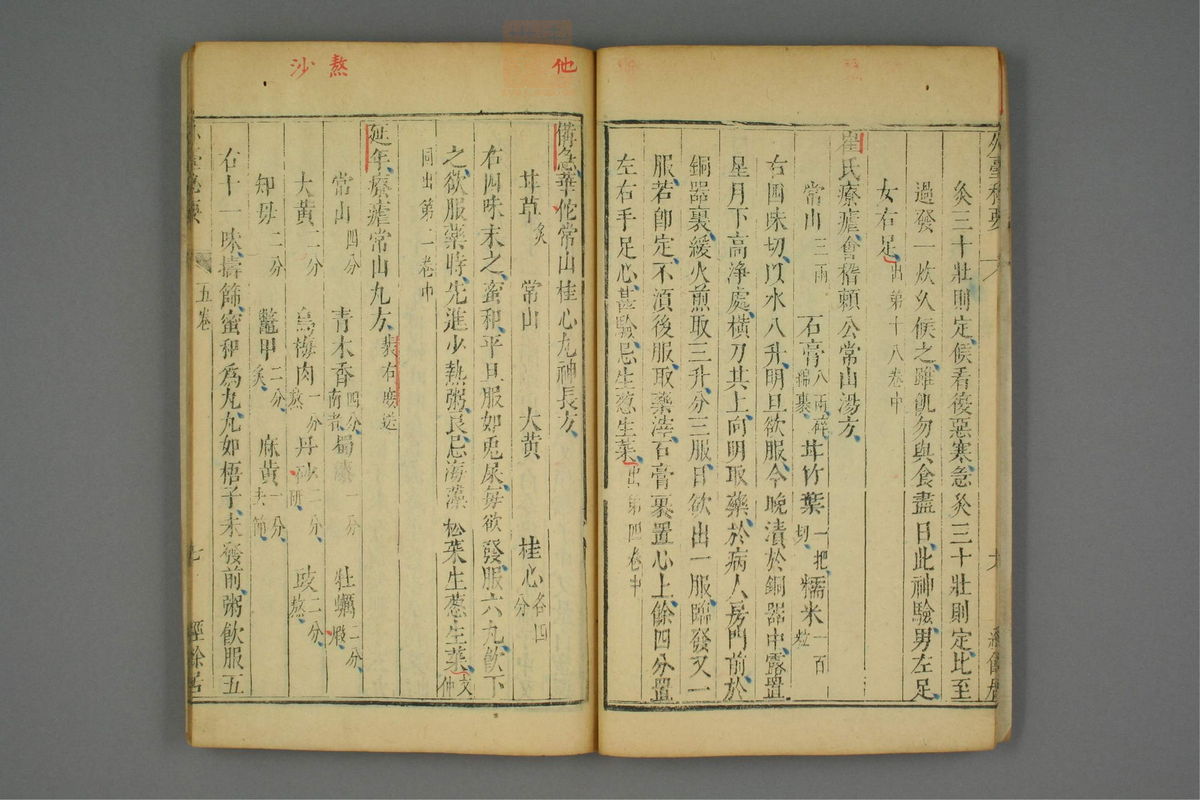 灸三十壯則定候看復惡寒急灸三十壯則定比至
過發一炊久候之雖飢勿與食盡日此神驗男左足
女右足出第十八卷中
崔氏療瘧會稽賴公常山湯方
常山三兩 石膏八兩碎綿裹 甘竹葉一把切 糯米一百粒
右四味切以水八升明旦欲服今晚漬於銅器中露置
星月下高淨處橫刀其上向明取藥於病人房門前於
銅器裏緩火煎取三升分三服日欲出一服臨發又一
服若即定不須後服取藥滓石膏裹置心上餘四分置
左右手足心甚驗忌生葱生菜出第四卷中
他
備急華佗常山桂心丸神長方
甘草炙 常山 大黃 桂心各四分
右四味末之蜜和平旦服如兎屎每欲發服六丸飲下
之欲服藥時先進少熱粥良忌海藻菘菜生葱生菜文仲
同出第一卷中
熬
沙
延年療瘧常山丸方
常山四分 青木香四分 蜀漆一分 牡蠣二分
大黃二分 烏梅肉一分熬 丹砂二分研 豉二分熬
知母二分 鼈甲二分炙 麻黃一分去節
右十一味擣篩蜜和爲丸丸如梧子未發前粥飲服五
五卷
七
經餘居